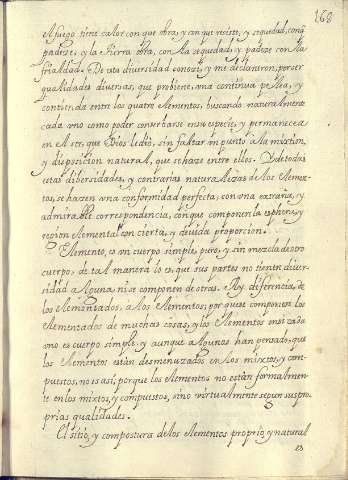 168
el fuego tiene calor con que obra, y con que resiste, y sequedad, con q̃
padeze, y la tierra obra, con la sequedad, y padeze con la
frialdad. De esta diversidad conozco, y me declararon, por ser
qualidades diversas, que probiene, una continua pelea, y
contienda entre los quatro elementos, buscando naturalmente
cada uno como poder conserbarse en su especie, y permanecer
en el ser, que Dios le dio, sin faltar un punto a la mixtion,
y disposicion natural, que se haze entre ellos. De todas
estas dibersidades, y contrarias naturalezas de los elemen-
tos, se hazen una conformidad perfecta, con una extraña, y
admirable correspondencia, con que componen la esphera, y
region elemental con cierta, y devida proporcion.
Elemento, es un cuerpo simple, puro, y sin mezcla de otro
cuerpo, de tal manera lo es, que sus partes no tienen diver-
sidad alguna, ni se componen de otras. Ay diferencia, de
los elementados, a los elementos; por que se componen los
elementados de muchas cosas, y los elementos en si cada
uno es cuerpo simple, y aunque algunos han pensado, que
los elementos estàn desmenuzados en los mixtos, y com-
puestos, no es asi, porque los elementos no estàn formalmen-
te en los mixtos, y compuestos, sino virtualmente segun sus pro-
prias qualidades.
El sitio, y compostura de los elementos proprio, y natural
es